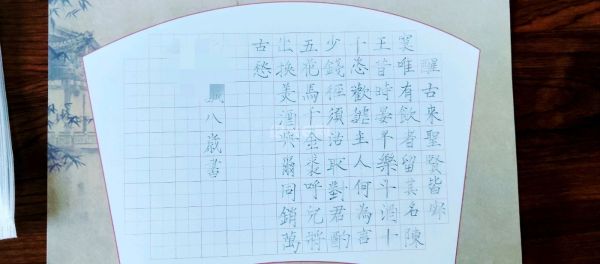 醒古來聖賢皆寂
寞唯有飲者留其名陳
王昔時宴平樂斗酒十
千恣歡謔主人何為言
少錢徑須沽取對君酌
五花馬千金裘呼兒將
出換美酒與爾同銷萬
古愁
八歲書